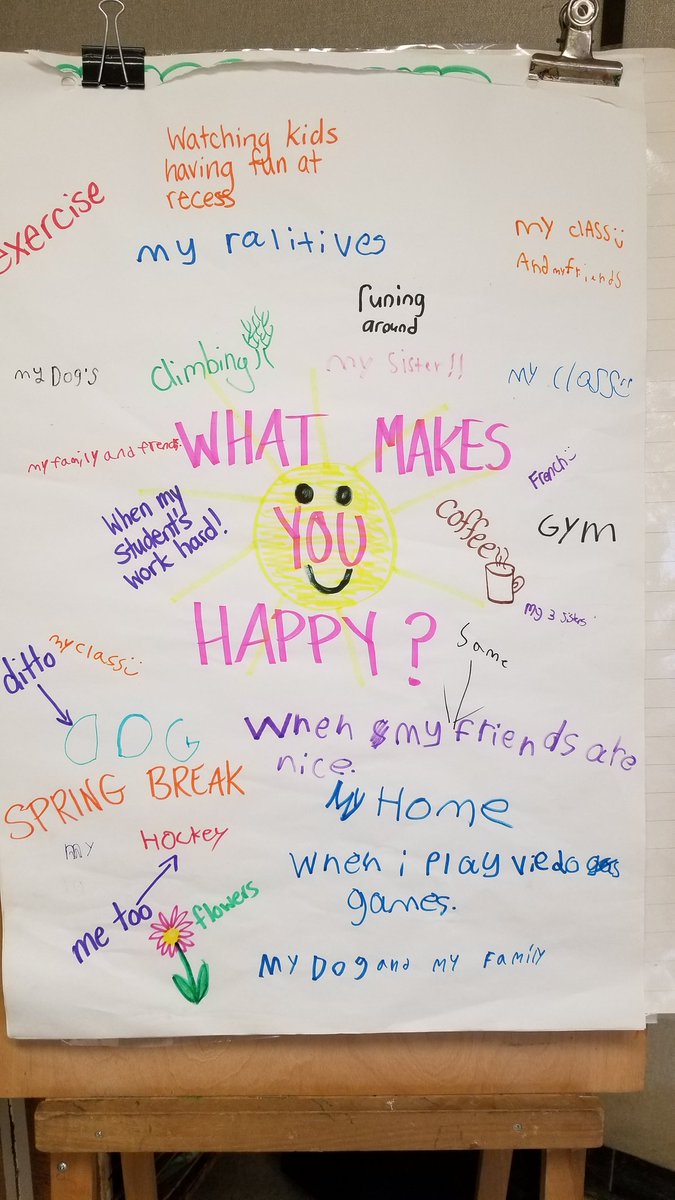 Watching kids
having fun at
recess
exercise
my ralitives
my clASS
And my friends
runing
around
climbing
my sister!!
my Dog's
my class
WHAT MAKES
YOU
HAPPY?
my family and friends
When my
student's
work hard!
coffee
French
GYM
My 3 sisters
Same
ditto
my class
DOG
When my friends are
nice.
SPRING BREAK
My Home
my
HOCKEY
When i play viedo
games.
me too
flowers
My Dog and my Family